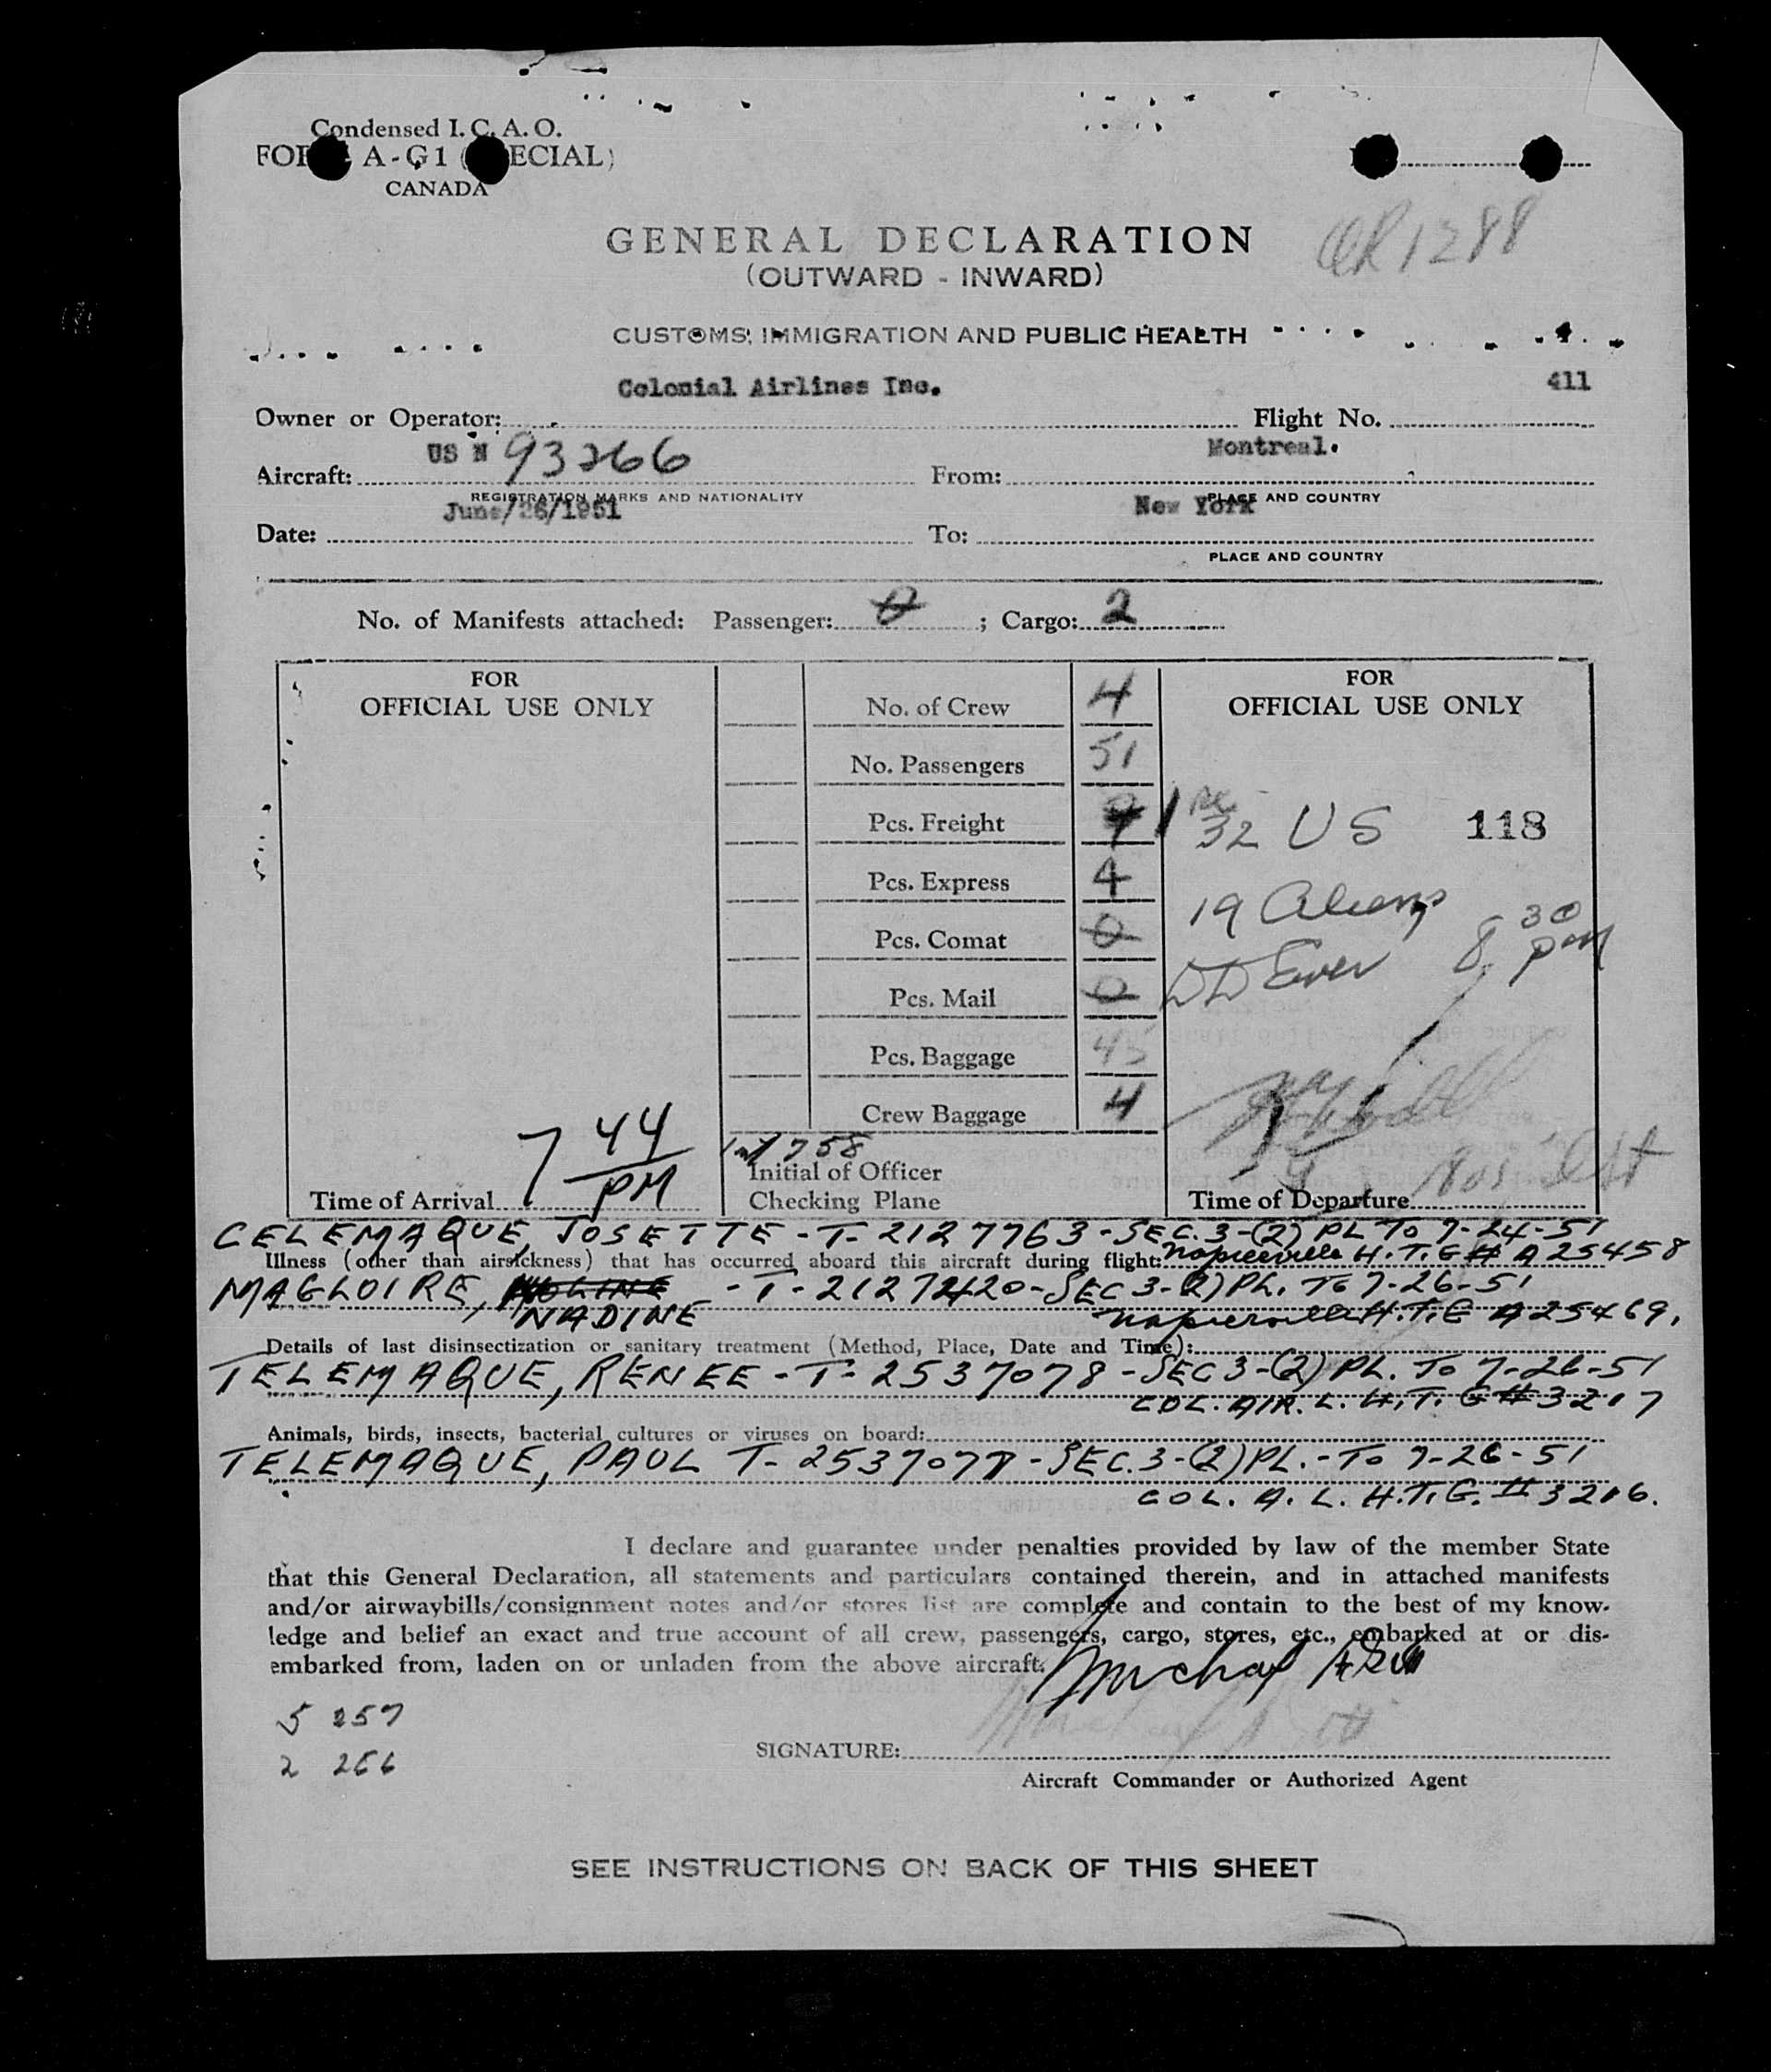 Condensed I. C. A. O.
FOR A-G1 (SPECIAL)
CANADA
GENERAL DECLARATION
(OUTWARD - INWARD)
CUSTOMS, IMMIGRATION AND PUBLIC HEALTH
Colonial Airlines Inc. 411
Owner or Operator: Flight No.
US N 93266 Montreal.
Aircraft: From:
REGISTRATION MARKS AND NATIONALITY PLACE AND COUNTRY
June/26/1951 New York
Date: To:
PLACE AND COUNTRY
No. of Manifests attached: Passenger: 0 ; Cargo: 2
FOR
OFFICIAL USE ONLY
No. of Crew 4
No. Passengers 51
Pcs. Freight
Pcs. Express 4
Pcs. Comat 0
Pcs. Mail 0
Pcs. Baggage 45
Crew Baggage 4
FOR
OFFICIAL USE ONLY
32 US 118
19 Aliens
8 30 PM
7 44 PM
758
Initial of Officer
Checking Plane
Time of Arrival
Time of Departure
CELEMAQUE, JOSETTE - T- 2127763 - SEC. 3-(2) PL TO 7-24-51
Illness (other than airsickness) that has occurred aboard this aircraft during flight: Napierville H.T.G # A25458
MAGLOIRE, NADINE - T- 21272420 - SEC 3-(2) PL. TO 7-26-51
Napierville H.T.G A25469.
Details of last disinsectization or sanitary treatment (Method, Place, Date and Time):
TELEMAQUE, RENEE - T- 2537078 - SEC 3-(2) PL. TO 7-26-51
COL. AIR. L. H.T. G # 3217
Animals, birds, insects, bacterial cultures or viruses on board:
TELEMAQUE, PAUL T- 2537077 - SEC. 3-(2) PL. - TO 7-26-51
COL. A. L. H.T.G. # 3216.
I declare and guarantee under penalties provided by law of the member State
that this General Declaration, all statements and particulars contained therein, and in attached manifests
and/or airwaybills/consignment notes and/or stores list are complete and contain to the best of my know-
ledge and belief an exact and true account of all crew, passengers, cargo, stores, etc., embarked at or dis-
embarked from, laden on or unladen from the above aircraft.
5 257
2 266
SIGNATURE:
Aircraft Commander or Authorized Agent
SEE INSTRUCTIONS ON BACK OF THIS SHEET